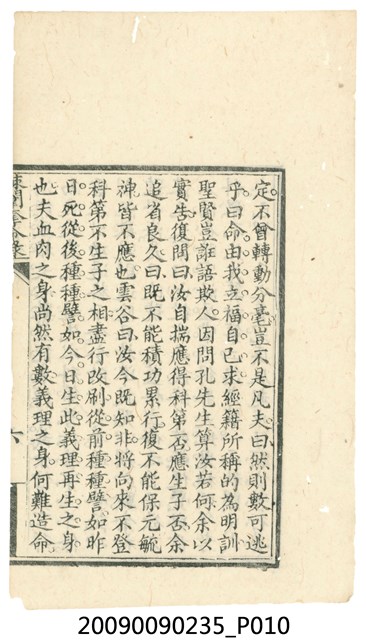 定不曾轉動分毫豈不是凡夫曰然則數可逃
乎曰命由我立福自己求經籍所稱的為明訓
聖賢豈誑語欺人因問孔先生算汝若何余以
實告復問曰汝自揣應得科第否應生子否余
追省良久曰既不能積功累行復不能保元毓
神皆不應也雲谷曰汝今既知非將向來不登
科第不生子之相盡行改刷從前種種譬如昨
日死從後種種譬如今日生此義理再生之身
也夫血肉之身尚然有數義理之身何難造命
六
20090090235_P010